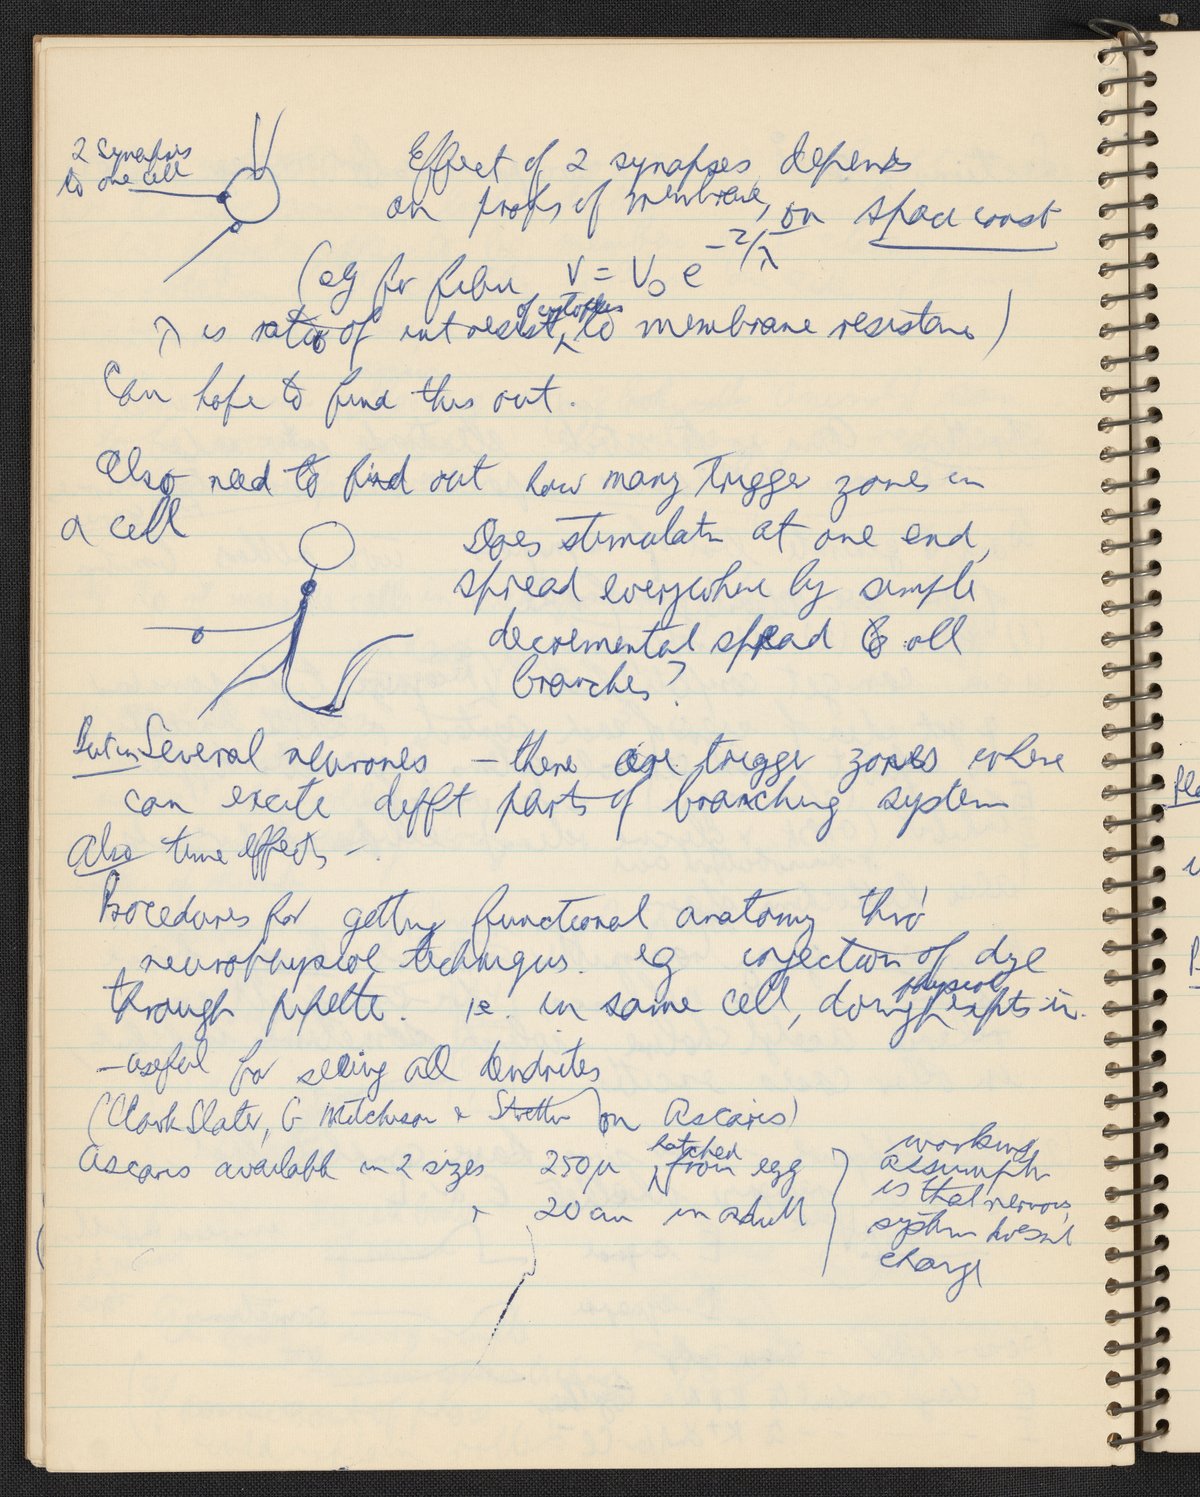 2 synapses
to one cell
Effect of 2 synapses depends
on props of membrane, on space const
(eg for fibre V = V₀ e^-z/λ
λ is ratio of int resist, of cytoplas to membrane resistance)
Can hope to find this out.
Also need to find out how many trigger zones in
a cell
Does stimulatn at one end,
spread everywhere by simple
decremental spread to all
branches?
But in Several neurones – there are trigger zones where
can excite difft parts of branching system
Also time effects –.
Procedures for getting functional anatomy thro'
neurophysiol techniques. eg injection of dye
through pipette. ie. in same cell, doing physiol expts in.
– useful for seeing all dendrites
(Clark Slater, G Mitchison & Stretton) on Ascaris)
Ascaris available in 2 sizes 250μ hatched from egg
& 20 cm in adult
working
assumptn
is that nervous
system doesnt
change